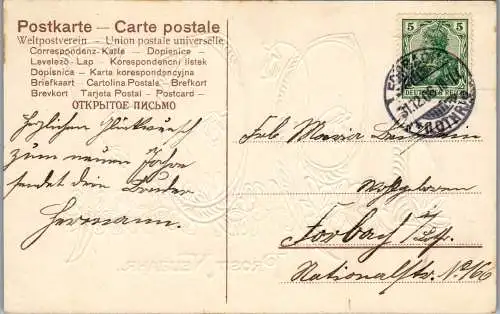 Postkarte — Carte postale
Weltpostverein — Union postale universelle
Correspondenz-Karte — Dopisnice —
Levelező-Lap — Korespondenčni listek
Dopisnica — Karta korespondencyjna
Briefkaart — Cartolina Postale — Brefkort
Brevkort — Tarjeta Postal — Postcard —
ОТКРЫТОЕ ПИСЬМО
Herzlichen Glückwunsch
zum neuen Jahre
sendet dein Bruder
Hermann.
5 5
DEUTSCHES REICH
31.12
Maria
Forbach i/Lothr.
Nationalstr. No 160
PROST NEUJAHR!